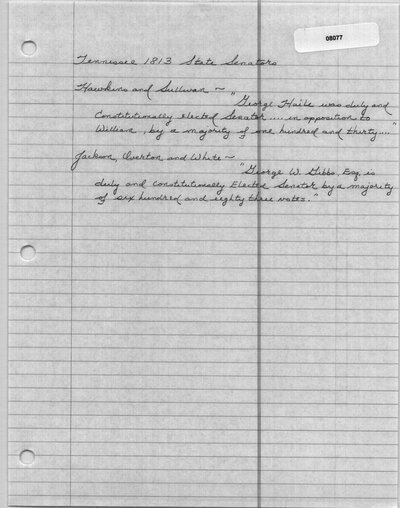 08077
Tennessee 1813 State Senators
Hawkins and Sullivan ~
"George Haile was duly and
Constitutionally elected Senator .... in opposition to
William, by a majority of one hundred and thirty...."
Jackson, Overton and White ~
"George W. Gibbs, Esq. is
duly and Constitutionally Elected Senator by a majority
of six hundred and eighty three votes."